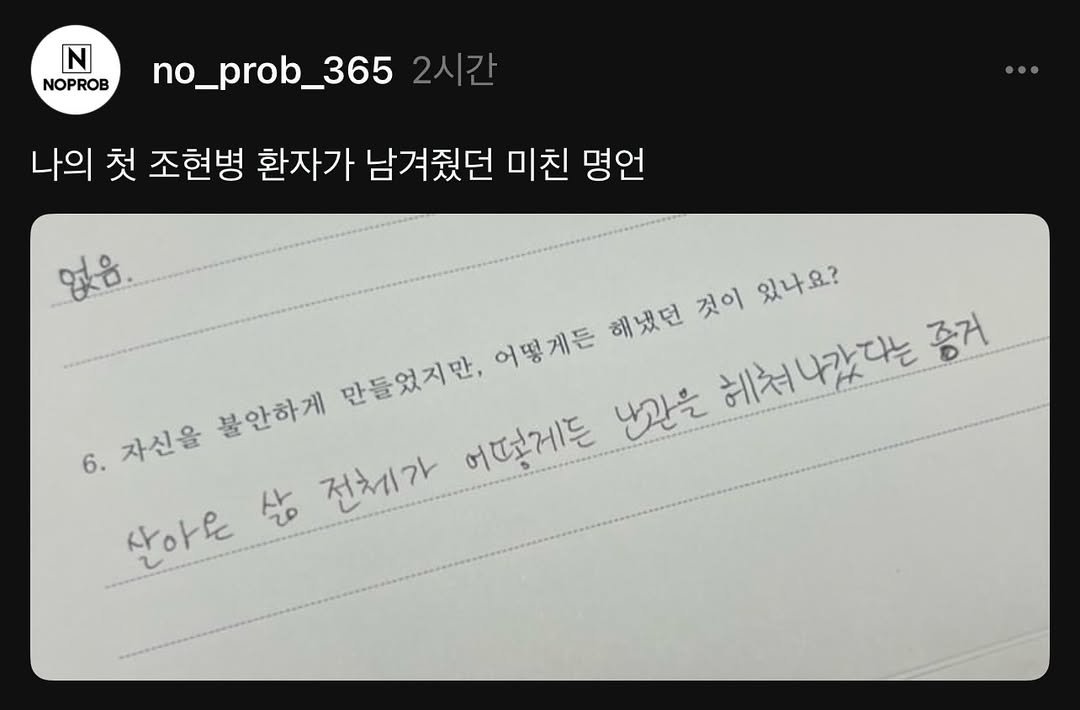 N
NOPROB
no_prob_365 2시간
나의 첫 조현병 환자가 남겨줬던 미친 명언
없음.
6. 자신을 불안하게 만들었지만, 어떻게든 해냈던 것이 있나요?
살아온 삶 전체가 어떻게든 난관을 헤쳐나갔다는 증거